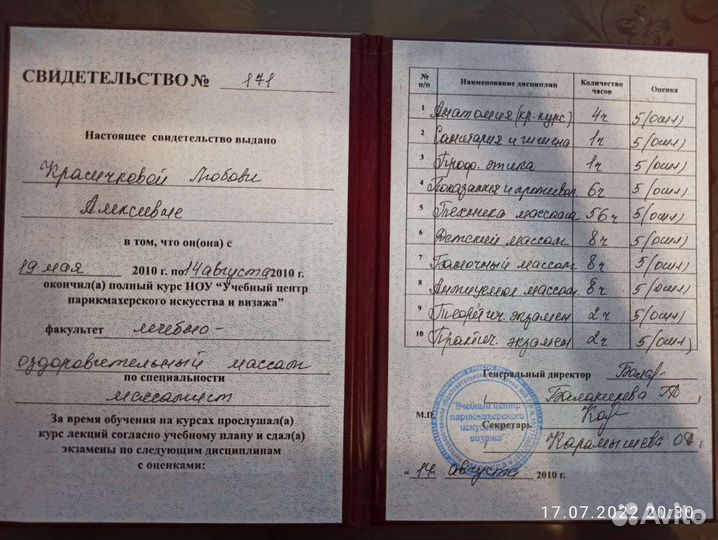 СВИДЕТЕЛЬСТВО № 171
Настоящее свидетельство выдано
Красичковой Любови
Алексевне
в том, что он(она) с
19 мая 2010 г. по 14 августа 2010 г.
окончил(а) полный курс НОУ “Учебный центр
парикмахерского искусства и визажа”
факультет лечебно-
оздоровительный массаж
по специальности
массажист
За время обучения на курсах прослушал(а)
курс лекций согласно учебному плану и сдал(а)
экзамены по следующим дисциплинам
с оценками:
№ п/п Наименование дисциплин Количество часов Оценка
1 Анатомия (кр. курс) 4ч 5 (отл)
2 Санитария и гигиена 1ч 5 (отл)
3 Проф. этика 1ч 5 (отл)
4 Показания и противоп. 6ч 5 (отл)
5 Техника массажа 56ч 5 (отл)
6 Детский массаж 8ч 5 (отл)
7 Баночный массаж 8ч 5 (отл)
8 массаж 8ч 5 (отл)
9 Теоретич. экзамен 2ч 5 (отл)
10 Практич. экзамен 2ч 5 (отл)
Генеральный директор
Балакирева
М.П.
Секретарь
Карамышева
Учебный центр
парикмахерского
искусства и
визажа
“14” августа 2010 г.
17.07.2022 20:30
Avito